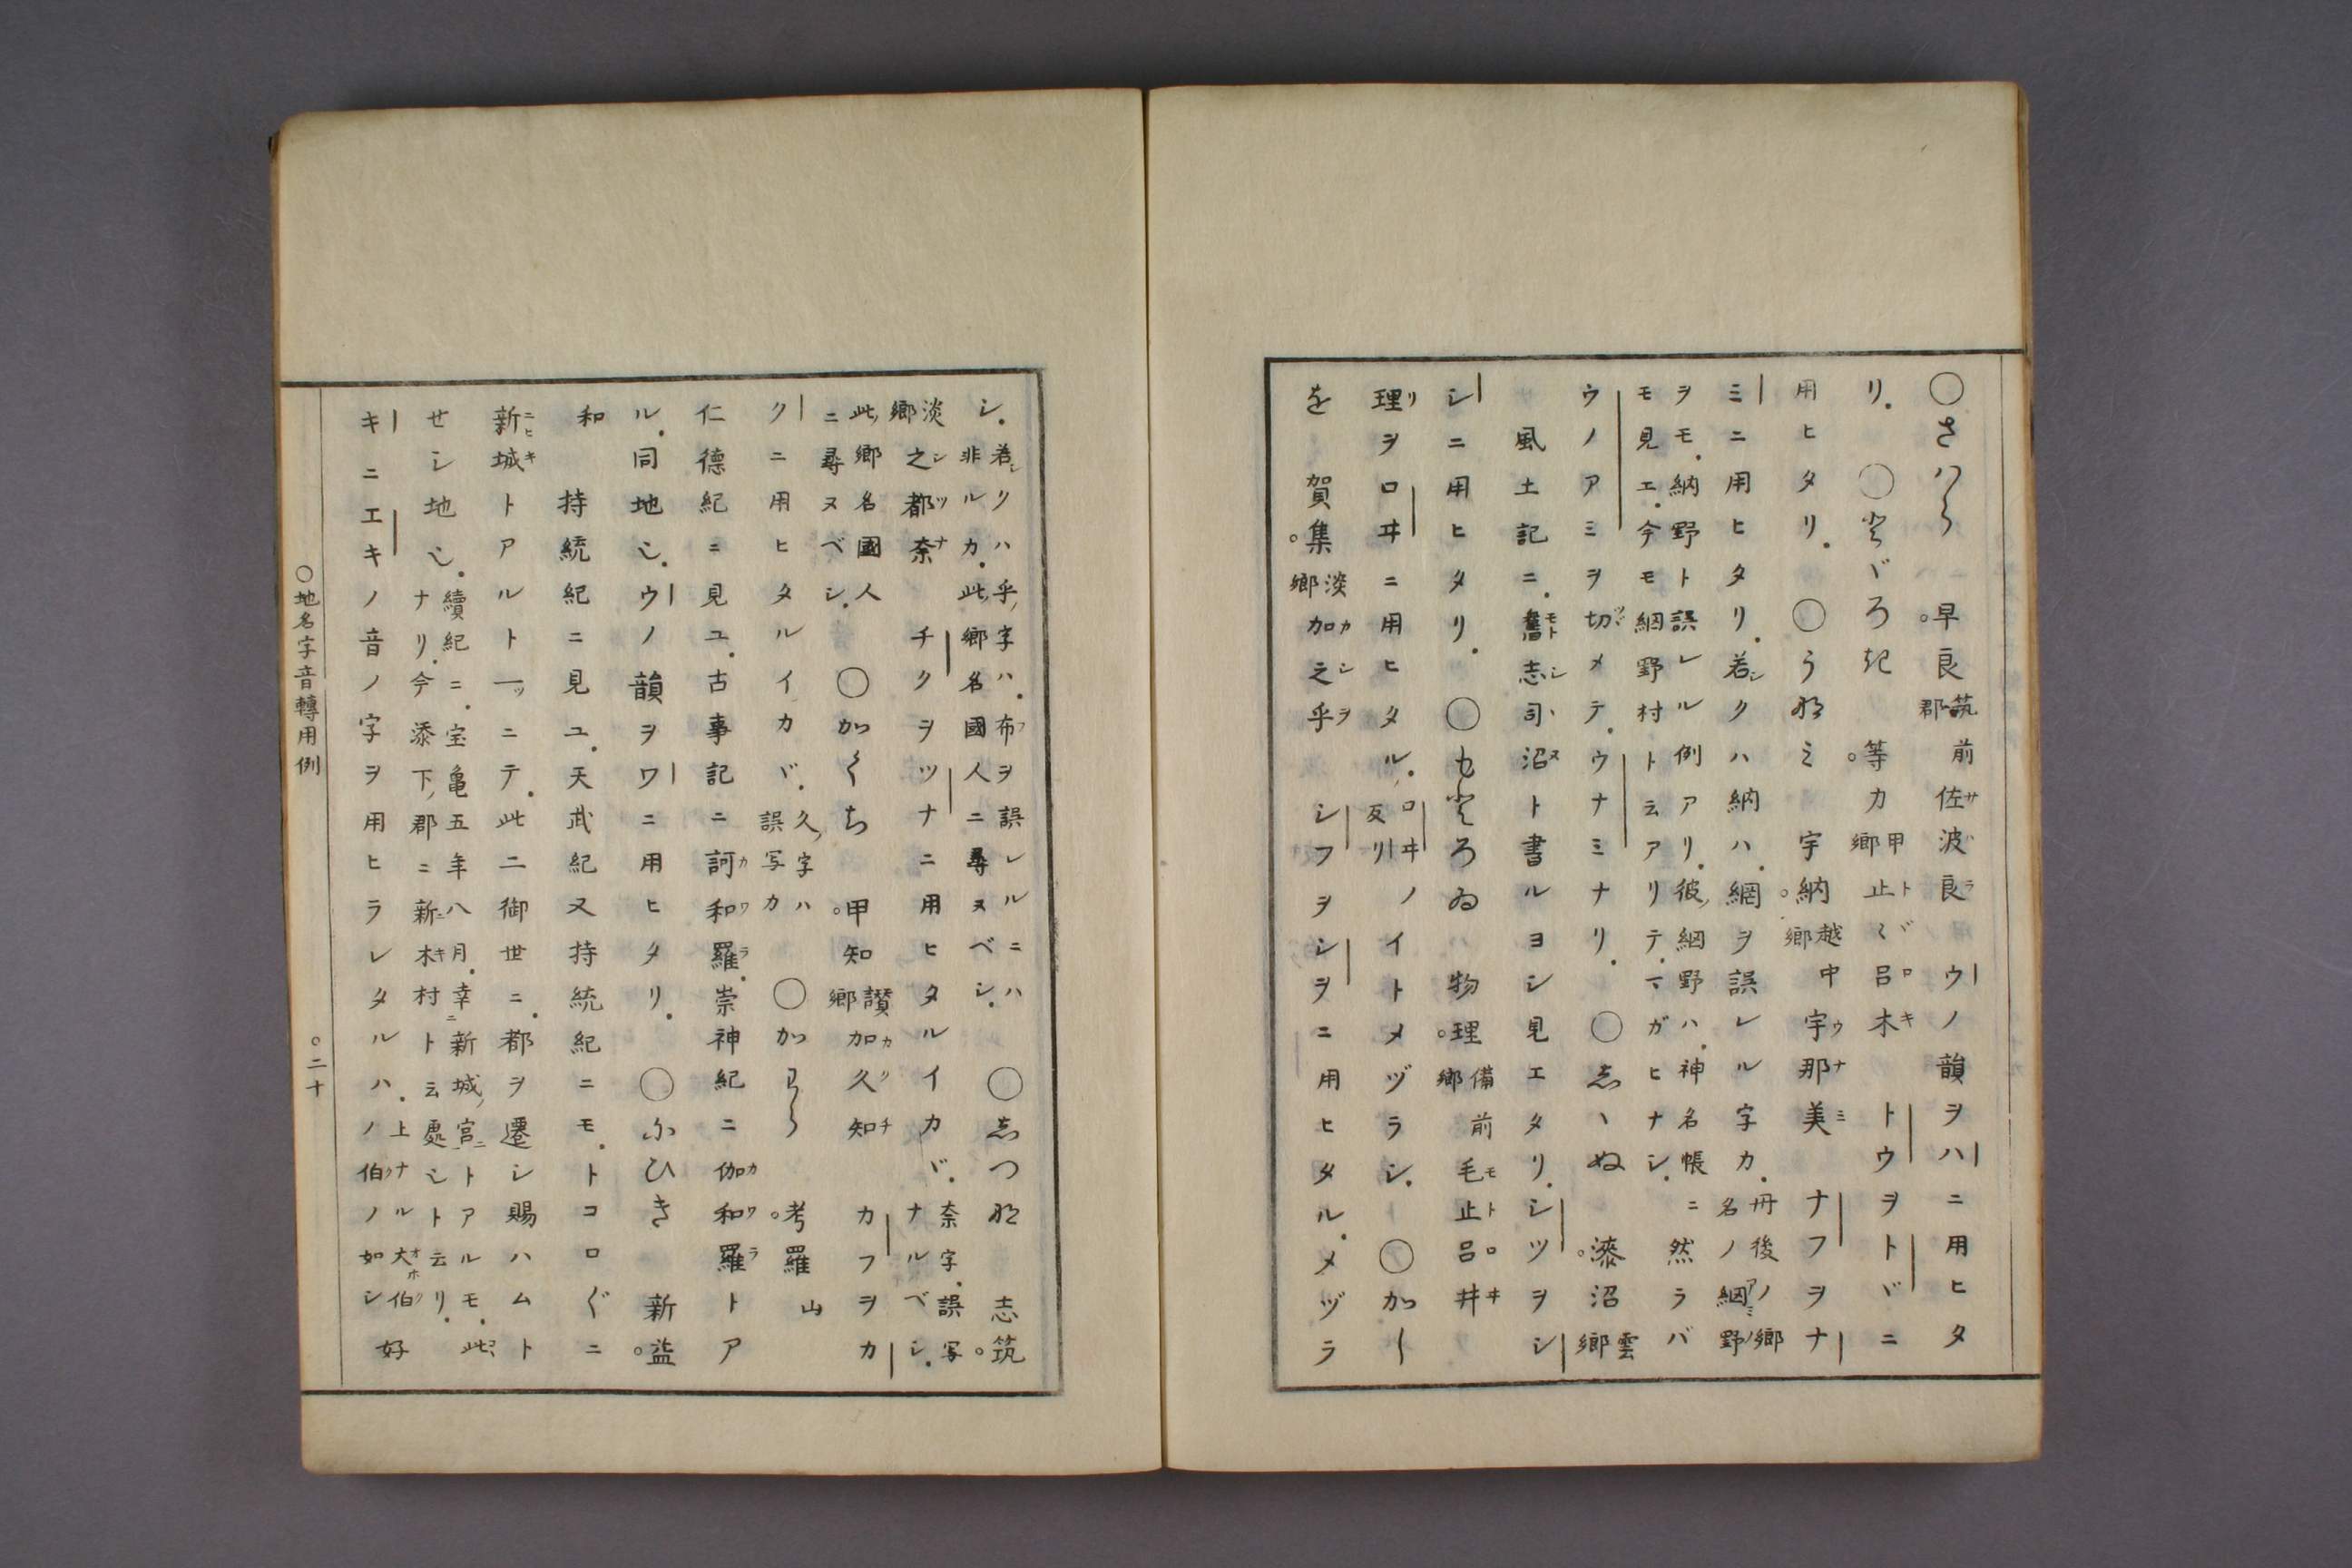 ○さハら　早良筑前郡佐波良　ウノ韻ヲハニ用ヒタ
リ．　○とゞろき　等力甲郷止〻呂木　トウヲトヾニ
用ヒタリ．　○うなミ　宇納越中郷宇那美　ナフヲナ
ミニ用ヒタリ．若シクハ納ハ．網ヲ誤レル字カ．丹後ノ郷名ノ網野
ヲモ．納野ト誤レル例アリ．彼網野ハ．神名帳ニ
モ見エ．今モ網野村ト云アリテ．マガヒナシ．然ラバ
ウノアミヲ切メテ．ウナミナリ．　○志ヽぬ　漆沼雲郷
風土記ニ．舊志司沼ト書ルヨシ見エタリ．シツヲシ
シニ用ヒタリ．　○もとろゐ　物理備前郷毛止呂井
理ヲロヰニ用ヒタル．ロヰノ反リイトメヅラシ．　○かし
を　賀集淡郷加之乎　シフヲシヲニ用ヒタル．メヅラ
シ．若シクハ乎字ハ．布ヲ誤レルニハ非ルカ．此郷名國人ニ尋ヌベシ．　○志つな　志筑
淡郷之都奈　チクヲツナニ用ヒタルイカヾ．奈字．誤写ナルベシ．
此郷名國人ニ尋ヌベシ．　○かくち　甲知讃郷加久知　カフヲカ
クニ用ヒタルイカヾ．久字ハ誤写カ　○かわら　考羅山
仁德紀ニ見ユ．古事記ニ訶和羅．崇神紀ニ伽和羅トア
ル．同地也．ウノ韻ヲワニ用ヒタリ．　○にひき　新益
和　持統紀ニ見ユ．天武紀又持統紀ニモ．トコロ〴〵ニ
新城トアルト一ツニテ．此二御世ニ．都ヲ遷シ賜ハムト
せシ地也．續紀ニ．宝亀五年八月．幸新城宮ニトアルモ．此ナリ．今添下郡ニ新木村ト云處也ト云リ．
キニエキノ音ノ字ヲ用ヒラレタルハ．上ノ伯ナル大伯ノ如シ　好
○地名字音轉用例　○二十